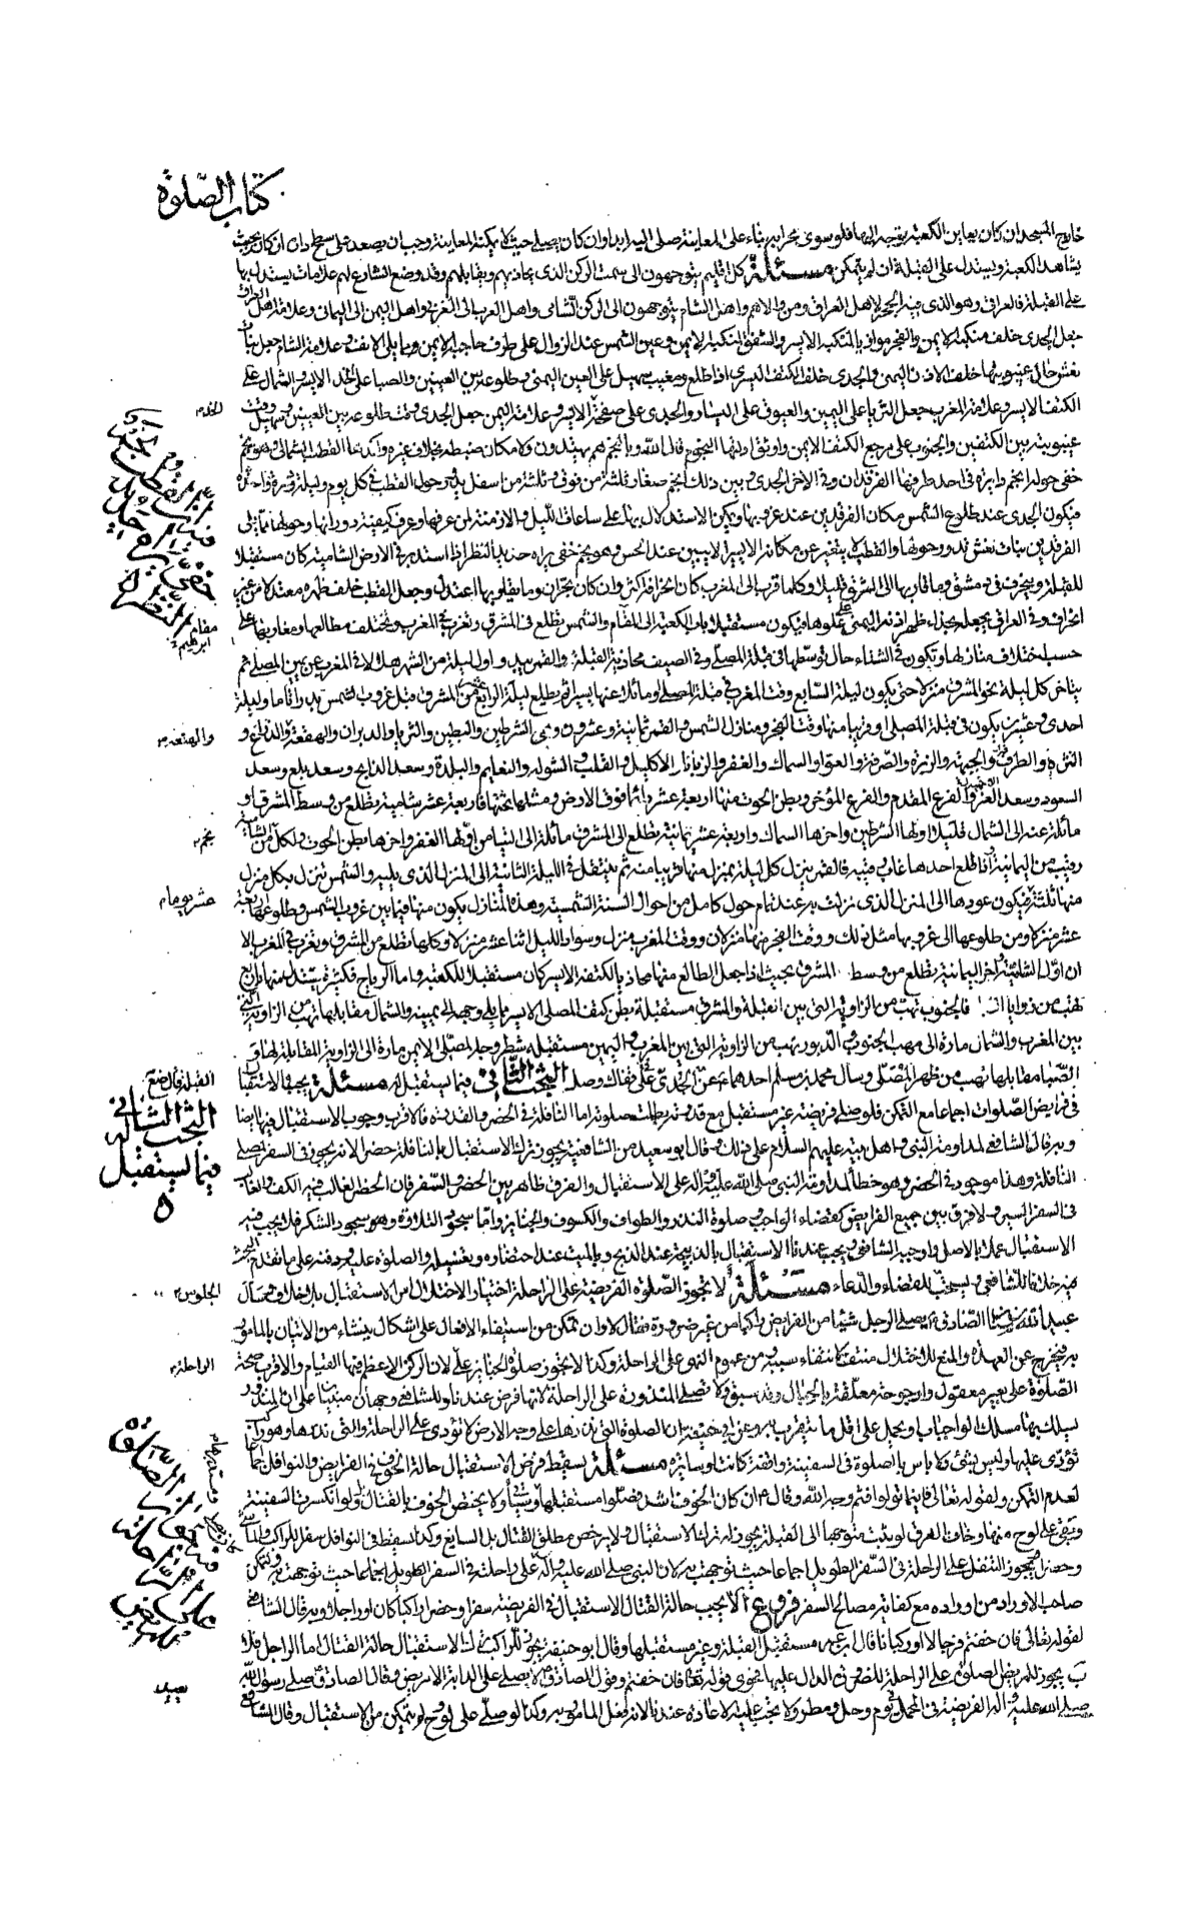 كتاب الصلوة
خارج المسجد ان كان يعاين الكعبة يتوجه اليها فلو سوى محرابه بناء على المعاينة صلى اليه ابدا وان كان يصلى حيث لا يمكنه المعاينة وجب ان يصعد على سطح دار ان كان بحيث
يشاهد الكعبة ويستدل على القبلة ان لم يتمكن مسئلة كل اقليم يتوجهون الى سمت الركن الذى يحاذيهم ويقابلهم وقد وضع الشارع لهم علامات يستدل بها
على القبلة فالعراقى وهو الذى فيه الحجر لاهل العراق ومن والاهم واهل الشام يتوجهون الى الركن الشامى واهل الغرب الى الغربى واهل اليمن الى اليمانى وعلامة اهل العراق
جعل الجدى خلف منكبه الايمن والفجر موازيا لمنكبه الايسر والشفق لمنكبه الايمن وعين الشمس عند الزوال على طرف حاجبه الايمن مما يلى الانف وعلامة الشام جعل بنات
نعش حال غيبوبتها خلف الاذن اليمنى والجدى خلف الكتف اليسرى اذا طلع ومغيب سهيل على العين اليمنى وطلوعه بين العينين والصبا على الخد الايسر والشمال على
الكتف الايسر وعلامة المغرب جعل الثريا على اليمين والعيوق على اليسار والجدى على صفحة الايسر وعلامة اليمن جعل الجدى وقت طلوعه بين العينين وسهيل وقت
غيبوبته بين الكتفين والجنوب على مرجع الكتف الايمن واوثق ادلتها النجوم قال الله وبالنجم هم يهتدون ولامكان ضبطه بخلاف غيره واكدها القطب الشمالى وهو نجم
خفى حوله انجم دايرة فى احد طرفيها الفرقدان وفى الاخر الجدى وبين ذلك انجم صغار ثلثة من فوق وثلثة من اسفل يدور حول القطب فى كل يوم وليلة دورة واحدة
فيكون الجدى عند طلوع الشمس مكان الفرقدين عند غروبها ويمكن الاستدلال بها على ساعات الليل والازمنة لمن عرفها وعرف كيفية دورانها وحولها مما يلى
الفرقدين بنات نعش يدور حولها والقطب لا يتغير عن مكانه الا يسيرا لا يبين عند الحس وهو نجم خفى يراه حديد النظر اذا استدبره فى الارض الشامية كان مستقبلا
للقبلة وينحرف فى دمشق وما قاربها الى المشرق قليلا وكلما قرب الى المغرب كان انحرافه اكثر وان كان بحران وما يقاربها اعتدل وجعل القطب خلف ظهره معتدلا من غير
انحراف وفى العراق يجعله بحذاء ظهر اذنه اليمنى على علوها فيكون مستقبلا باب الكعبة الى المقام والشمس يطلع فى المشرق وتغرب فى المغرب وتختلف مطالعها ومغاربها على
حسب اختلاف منازلها وتكون فى الشتاء حال توسطها فى قبلة المصلى وفى الصيف محاذية القبلة والقمر يبدو اول ليلة من الشهر هلالا فى المغرب عن يمين المصلى ثم
يتاخر كل ليلة نحو المشرق منزلا حتى يكون ليلة السابع وقت المغرب فى قبلة المصلى او مائلا عنها يسيرا ثم يطلع ليلة الرابع عشر من المشرق قبل غروب الشمس بدرا تاما وليلة
احدى وعشرين يكون فى قبلة المصلى او قريبا منها وقت الفجر ومنازل الشمس والقمر ثمانية وعشرون وهى الشرطين والبطين والثريا والدبران والهقعة والذراع و
النثرة والطرف والجبهة والزبرة والصرفة والعوا والسماك والغفر والزبانا والاكليل والقلب والشولة والنعايم والبلدة وسعد الذابح وسعد بلع وسعد
السعود وسعد الاخبية والفرغ المقدم والفرغ المؤخر وبطن الحوت منها اربعة عشر دائما فوق الارض ومثلها تحتها فاربعة عشر شامية يطلع من وسط المشرق او
مائلة عنه الى الشمال قليلا اولها الشرطين واخرها السماك واربعة عشر يمانية يطلع الى المشرق مائلة الى التيامن اولها الغفر واخرها بطن الحوت ولكل من الشامية
رقيب من اليمانية اذا طلع احدها غاب رقيبه فالقمر ينزل كل ليلة بمنزل منها قريبا منه ثم ينتقل فى الليلة الثانية الى المنزل الذى يليه والشمس تنزل بكل منزل
منها ثلثة فيكون عودها الى المنزل الذى نزلت به عند تمام حول كامل من احوال السنة الشمسية وهذه المنازل يكون منها فيما بين غروب الشمس وطلوعها اربعة
عشر منزلا ومن طلوعها الى غروبها مثل ذلك ووقت الفجر منها منزلان ووقت المغرب منزل وسواد الليل اثنا عشر منزلا وكلها تطلع من المشرق وتغرب فى المغرب الا
ان اول الشامية واخر اليمانية يطلع من وسط المشرق بحيث اذا جعل الطالع منها محاذيا لكتفه الايسر كان مستقبلا للكعبة واما الرياح فكثيرة يستدل منها باربع
تهب من زوايا فالجنوب تهب من الزاوية التى بين القبلة والمشرق مستقبلة بطن كتف المصلى الايسر مما يلى وجهه الى يمينه والشمال مقابلها تهب من الزاوية التى
بين المغرب والشمال مارة الى مهب الجنوب والدبور تهب من الزاوية التى بين المغرب واليمين مستقبلة شطر وجه المصلى الايمن مارة الى الزاوية المقابلة لها و
الصبا مقابلها تهب من ظهر المصلى وسأل محمد بن مسلم احدهما عن الجدى فى قفاك وصل البحث الثانى فيما يستقبل له مسئلة يجب الاستقبال
فى فرايض الصلوات اجماعا مع التمكن فلو صلى فريضة غير مستقبل مع قدرته بطلت صلوته اما النافلة فى الحضر والقدرة فالاقرب وجوب الاستقبال فيها ايضا
وبه قال الشافعى لمداومة النبى واهل بيته عليهم السلام على ذلك وقال ابو سعيد من الشافعية يجوز ترك الاستقبال بالنافلة حضرا لانه يجوز فى السفر لئلا
النافلة وهذا موجود فى الحضر وهو خطأ لمداومة النبى صلى الله عليه وآله على الاستقبال والفرق ظاهر بين الحضر والسفر فان الحضر الغالب فيه الكف والغالب
فى السفر السير ولا فرق بين جميع الفرايض كقضاء الواجب وصلوة النذر والطواف والكسوف والجنايز واما سجود التلاوة وهو سجود الشكر فلا يجب فيه
الاستقبال عملا بالاصل واوجبه الشافعى ويجب عندنا الاستقبال بالذبيحة عند الذبح وبالميت عند احتضاره وتغسيله والصلوة عليه ودفنه على ما تقدم
فيه خلافا للشافعى ويستحب للقضاء والدعاء مسئلة لا يجوز الصلوة الفريضة على الراحلة اختيارا لاختلال امر الاستقبال بلا خلاف
عبد الله بن سنان الصادق يصلى الرجل شيئا من الفرايض راكبا من غير ضرورة فقال لا وان تمكن من استيفاء الافعال على اشكال ينشاء من الاتيان بالمامور
به فيخرج عن العهدة والمنع للاختلال منتف لانتفاء سببه ومن عموم النهى على الراحلة وكذا لا يجوز صلوة الجنايز على لان الركن الاعظم فيها القيام والاقرب صحة
الصلوة على بعير معقول وارجوحة معلقة بالحبال وقد سبق ولا تصلى المنذورة على الراحلة لانها فرض عندنا وللشافعى وجهان مبنيان على ان المنذور
يسلك بها مسلك الواجبات او يحمل على اقل ما يتقرب به وعن ابى حنيفة ان الصلوة التى نذرها على وجه الارض لا تؤدى على الراحلة والتى نذرها وهو راكب
تؤدى عليها وليس بشئ ولا باس بالصلوة فى السفينة واقفة كانت او سايرة مسئلة يسقط فرض الاستقبال حالة الخوف فى الفرايض والنوافل اجماعا
لعدم التمكن ولقوله تعالى فاينما تولوا فثم وجه الله وقال م ان كان الخوف اشد فصلوا مستقبلها ولا يختص الخوف بالقتال ولو انكسرت السفينة
وبقى على لوح منها وخاف الغرق لو يثبت متوجها الى القبلة يجوز له ترك الاستقبال ولا يرخص مطلق القتال بل السايغ وكذا يسقط فى النوافل سفرا للراكب والماشى
وحضرا يجوز التنفل على الراحلة فى السفر الطويل اجماعا حيث توجهت به لان النبى صلى الله عليه وآله على راحلته فى السفر الطويل اجماعا حيث توجهت به وليتمكن
صاحب الاوراد من اوراده مع كفاية مصالح السفر فروع ا لا يجب حالة القتال الاستقبال فى الفريضة سفرا وحضرا راكبا كان او راجلا وبه قال الشافعى
لقوله تعالى فان خفتم فرجالا او ركبانا قال ابن عمر مستقبلى القبلة وغير مستقبلها وقال ابو حنيفة يجوز للراكب ترك الاستقبال حالة القتال اما الراجل فلا
ب يجوز للمريض الصلوة على الراحلة للضرورة الدال عليها فحوى قوله تعالى فان خفتم وقول الصادق لا يصلى على الدابة الا مريض وقال الصادق صلى رسول الله
صلى الله عليه وآله الفريضة فى المحمل فى يوم وحل ومطر ولا يجب عليه الاعادة عندنا لانه فعل المامور به وكذا لو صلى على لوح لم يتمكن من الاستقبال وقال الشافعى
فى ان القطب نجم خفى يراه حديد النظر
مقام ابراهيم
والهنعة
نجم
عشر يوما
القبلة قال ضع
البحث الثانى فيما يستقبل له
الجلوس
الراحلة
فى جواز الصلوة على الراحلة للمريض